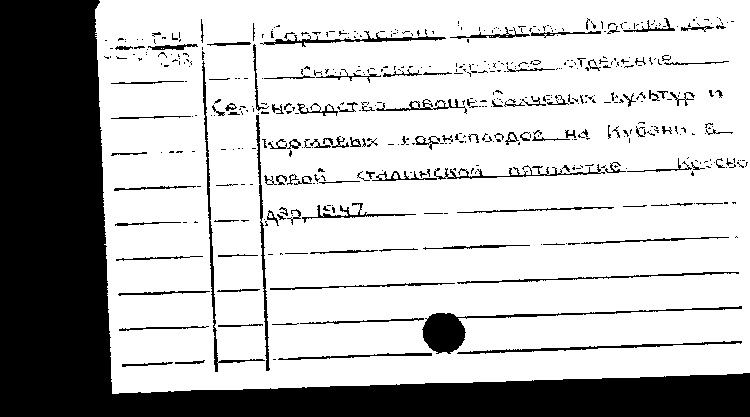 Г-4 Сортсеmовощ контора Москва
243 снодарское краевое отделение.
Семеноводство овоще-бахчевых культур и
кормовых корнеплодов на Кубани. в
новой сталинской пятилетке. Красно
дар, 1947